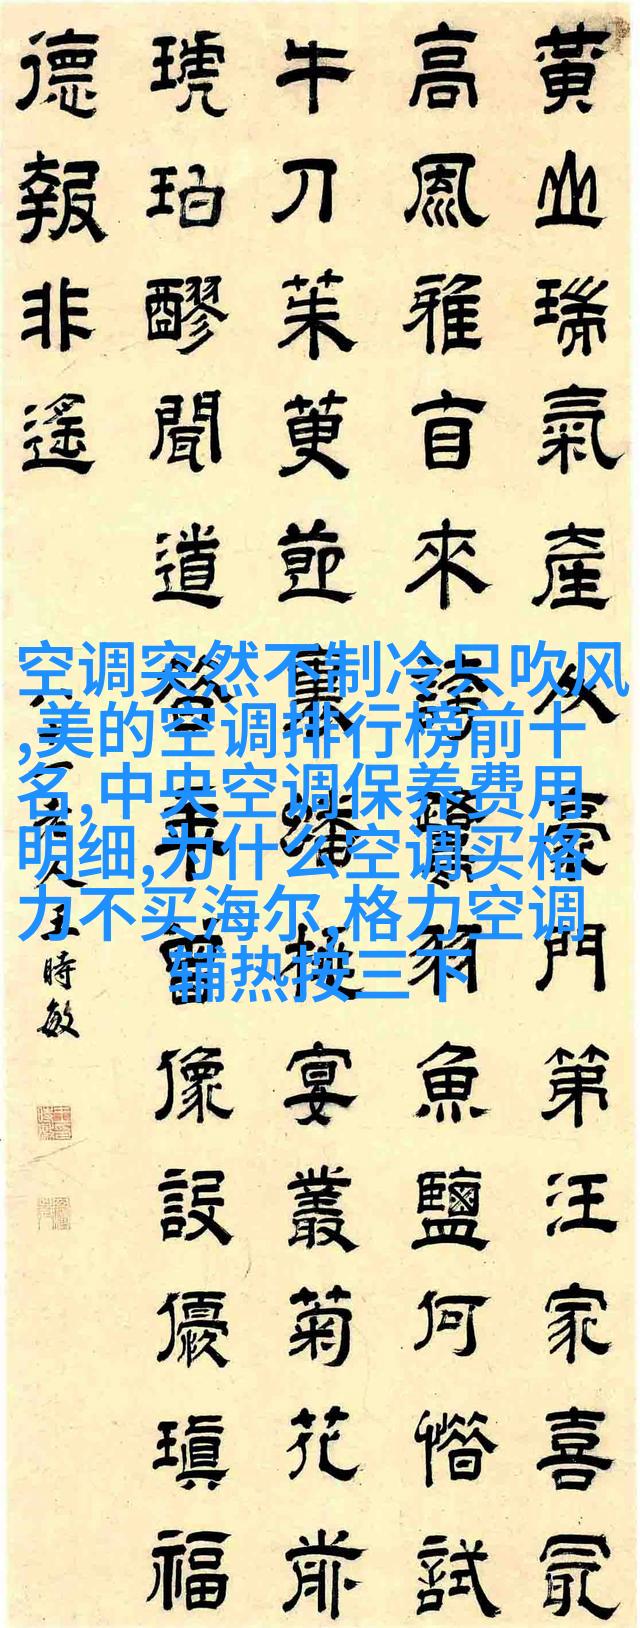 黃山瑞氣產豪門第汪家喜冣
高風雅盲來誇羽魚鹽何憯試
牛刀茱萸節集接宴叢菊花前
琥珀醪聞道年曾像設優瑱福
德報非遙
老人王時敏
空调突然不制冷只吹风
,美的空调排行榜前十
名,中央空调保养费用
明细,为什么空调买格
力不买海尔,格力空调
辅热按三下